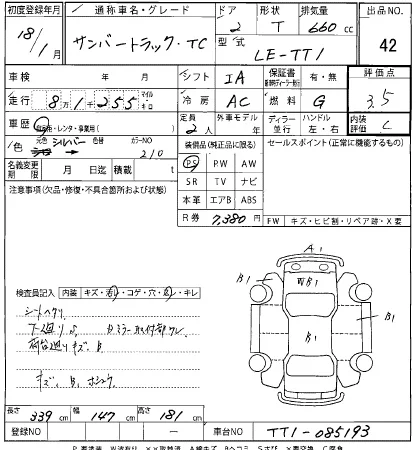 初度登録年月 通称車名・グレード ドア 形状 排気量 出品NO
18/1月 サンバートラック・TC 2 T 660 cc 42
型式 LE-TT1
車検 年 月 シフト IA 保証書 有・無 評価点
走行 8万1千255 マイル キロ 冷房 AC 燃料 G 3.5
車歴 自家用・レンタ・事業用( ) 定員 2人 外車モデル 年 ディーラー 並行 ハンドル 左・右 内装評価 C
色 元色 シルバー 色替 カラーNO 210 装備品(純正品に限る) セールスポイント(正常に機能するもの)
名義変更期限 月 日迄 積載 t PS PW AW
注意事項(欠品・修復・不具合箇所および状態) SR TV ナビ
本革 エアB ABS
R券 7,380円 FW キズ・ヒビ割・リペア跡・X要
A1
B1 WB1 B1
検査員記入 内装 キズ・汚れ・コゲ・穴・臭・キレ
シートヘタリ
B1 B1
荷台廻りキズ、B
キズ、B、
長さ 339 cm 幅 147 cm 高さ 181 cm
登録NO — 車台NO TT1-085193